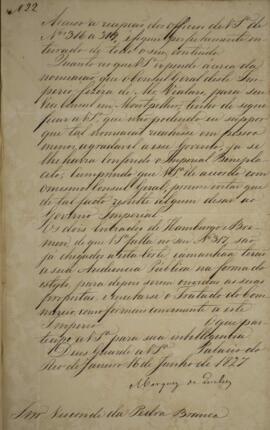 N 22
Accuso a recepção dos Officios de V.Sª de
Nºs 310 a 314, e fiquei perfeitamente in-
teirado de todo o seu contendo.
Quanto ao que V.Sª expende ácerca da
nomeação, que o Consul Geral deste Im-
perio fizera de Mr. para seu
Vice Consul em Montpellier, tenho de signi-
ficar a V.Sª que não podendo eu suppor
que tal nomeação recahisse em pessoa
menos agradavel a esse Governo, já se
lhe havia conferido o Imperial Benepla-
cito, cumprindo que V.Sª de accordo com
o mesmo Consul Geral, procure evitar que
de tal facto resulte algum desar ao
Governo Imperial.
Os dois Enviados de Hamburgo e Bre-
men, de que V.Sª falla no seu Nº 317, são
já chegados a esta Corte, e amanhã terão
a sua Audiencia Publica na forma do
estylo, para depois serem ouvidas as suas
propostas, e encetar-se o Tratado de Com-
mercio, conforme convier a este
Imperio. O que par-
ticipo a V.Sª para sua intelligencia.
Deus Guarde a V.Sª Palacio do
Rio de Janeiro 16 de Junho de 1827
Marquez de Queluz
Snr. Visconde da Pedra Branca